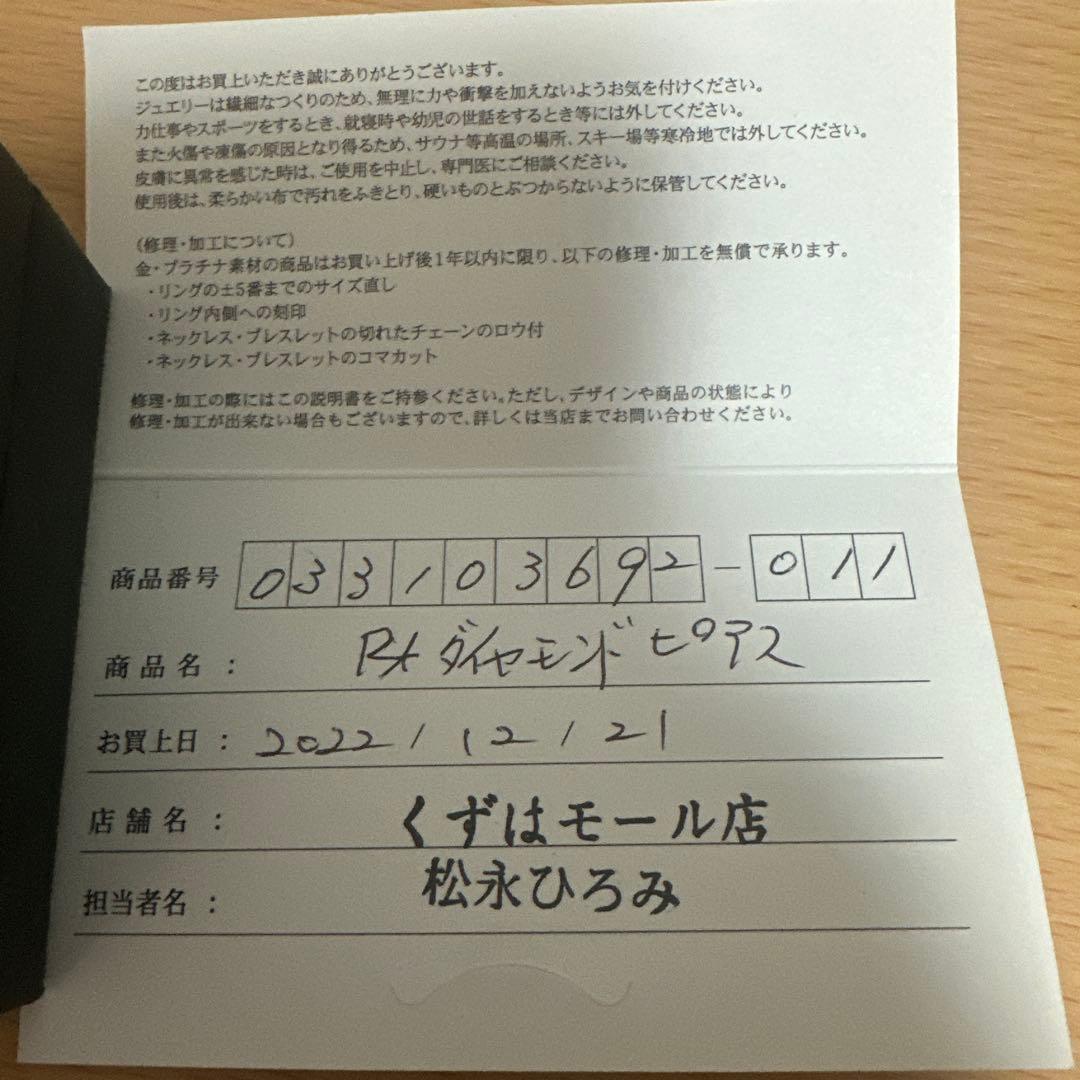 この度はお買上いただき誠にありがとうございます。
ジュエリーは繊細なつくりのため、無理に力や衝撃を加えないようお気を付けください。
力仕事やスポーツをするとき、就寝時や幼児の世話をするとき等には外してください。
また火傷や凍傷の原因となり得るため、サウナ等高温の場所、スキー場等寒冷地では外してください。
皮膚に異常を感じた時は、ご使用を中止し、専門医にご相談ください。
使用後は、柔らかい布で汚れをふきとり、硬いものとぶつからないように保管してください。
〈修理・加工について〉
金・プラチナ素材の商品はお買い上げ後1年以内に限り、以下の修理・加工を無償で承ります。
・リングの±5番までのサイズ直し
・リング内側への刻印
・ネックレス・ブレスレットの切れたチェーンのロウ付
・ネックレス・ブレスレットのコマカット
修理・加工の際にはこの説明書をご持参ください。ただし、デザインや商品の状態により
修理・加工が出来ない場合もございますので、詳しくは当店までお問い合わせください。
商品番号 033103692-011
商品名： Pt ダイヤモンド ピアス
お買上日： 2022/12/21
店舗名： くずはモール店
担当者名： 松永ひろみ